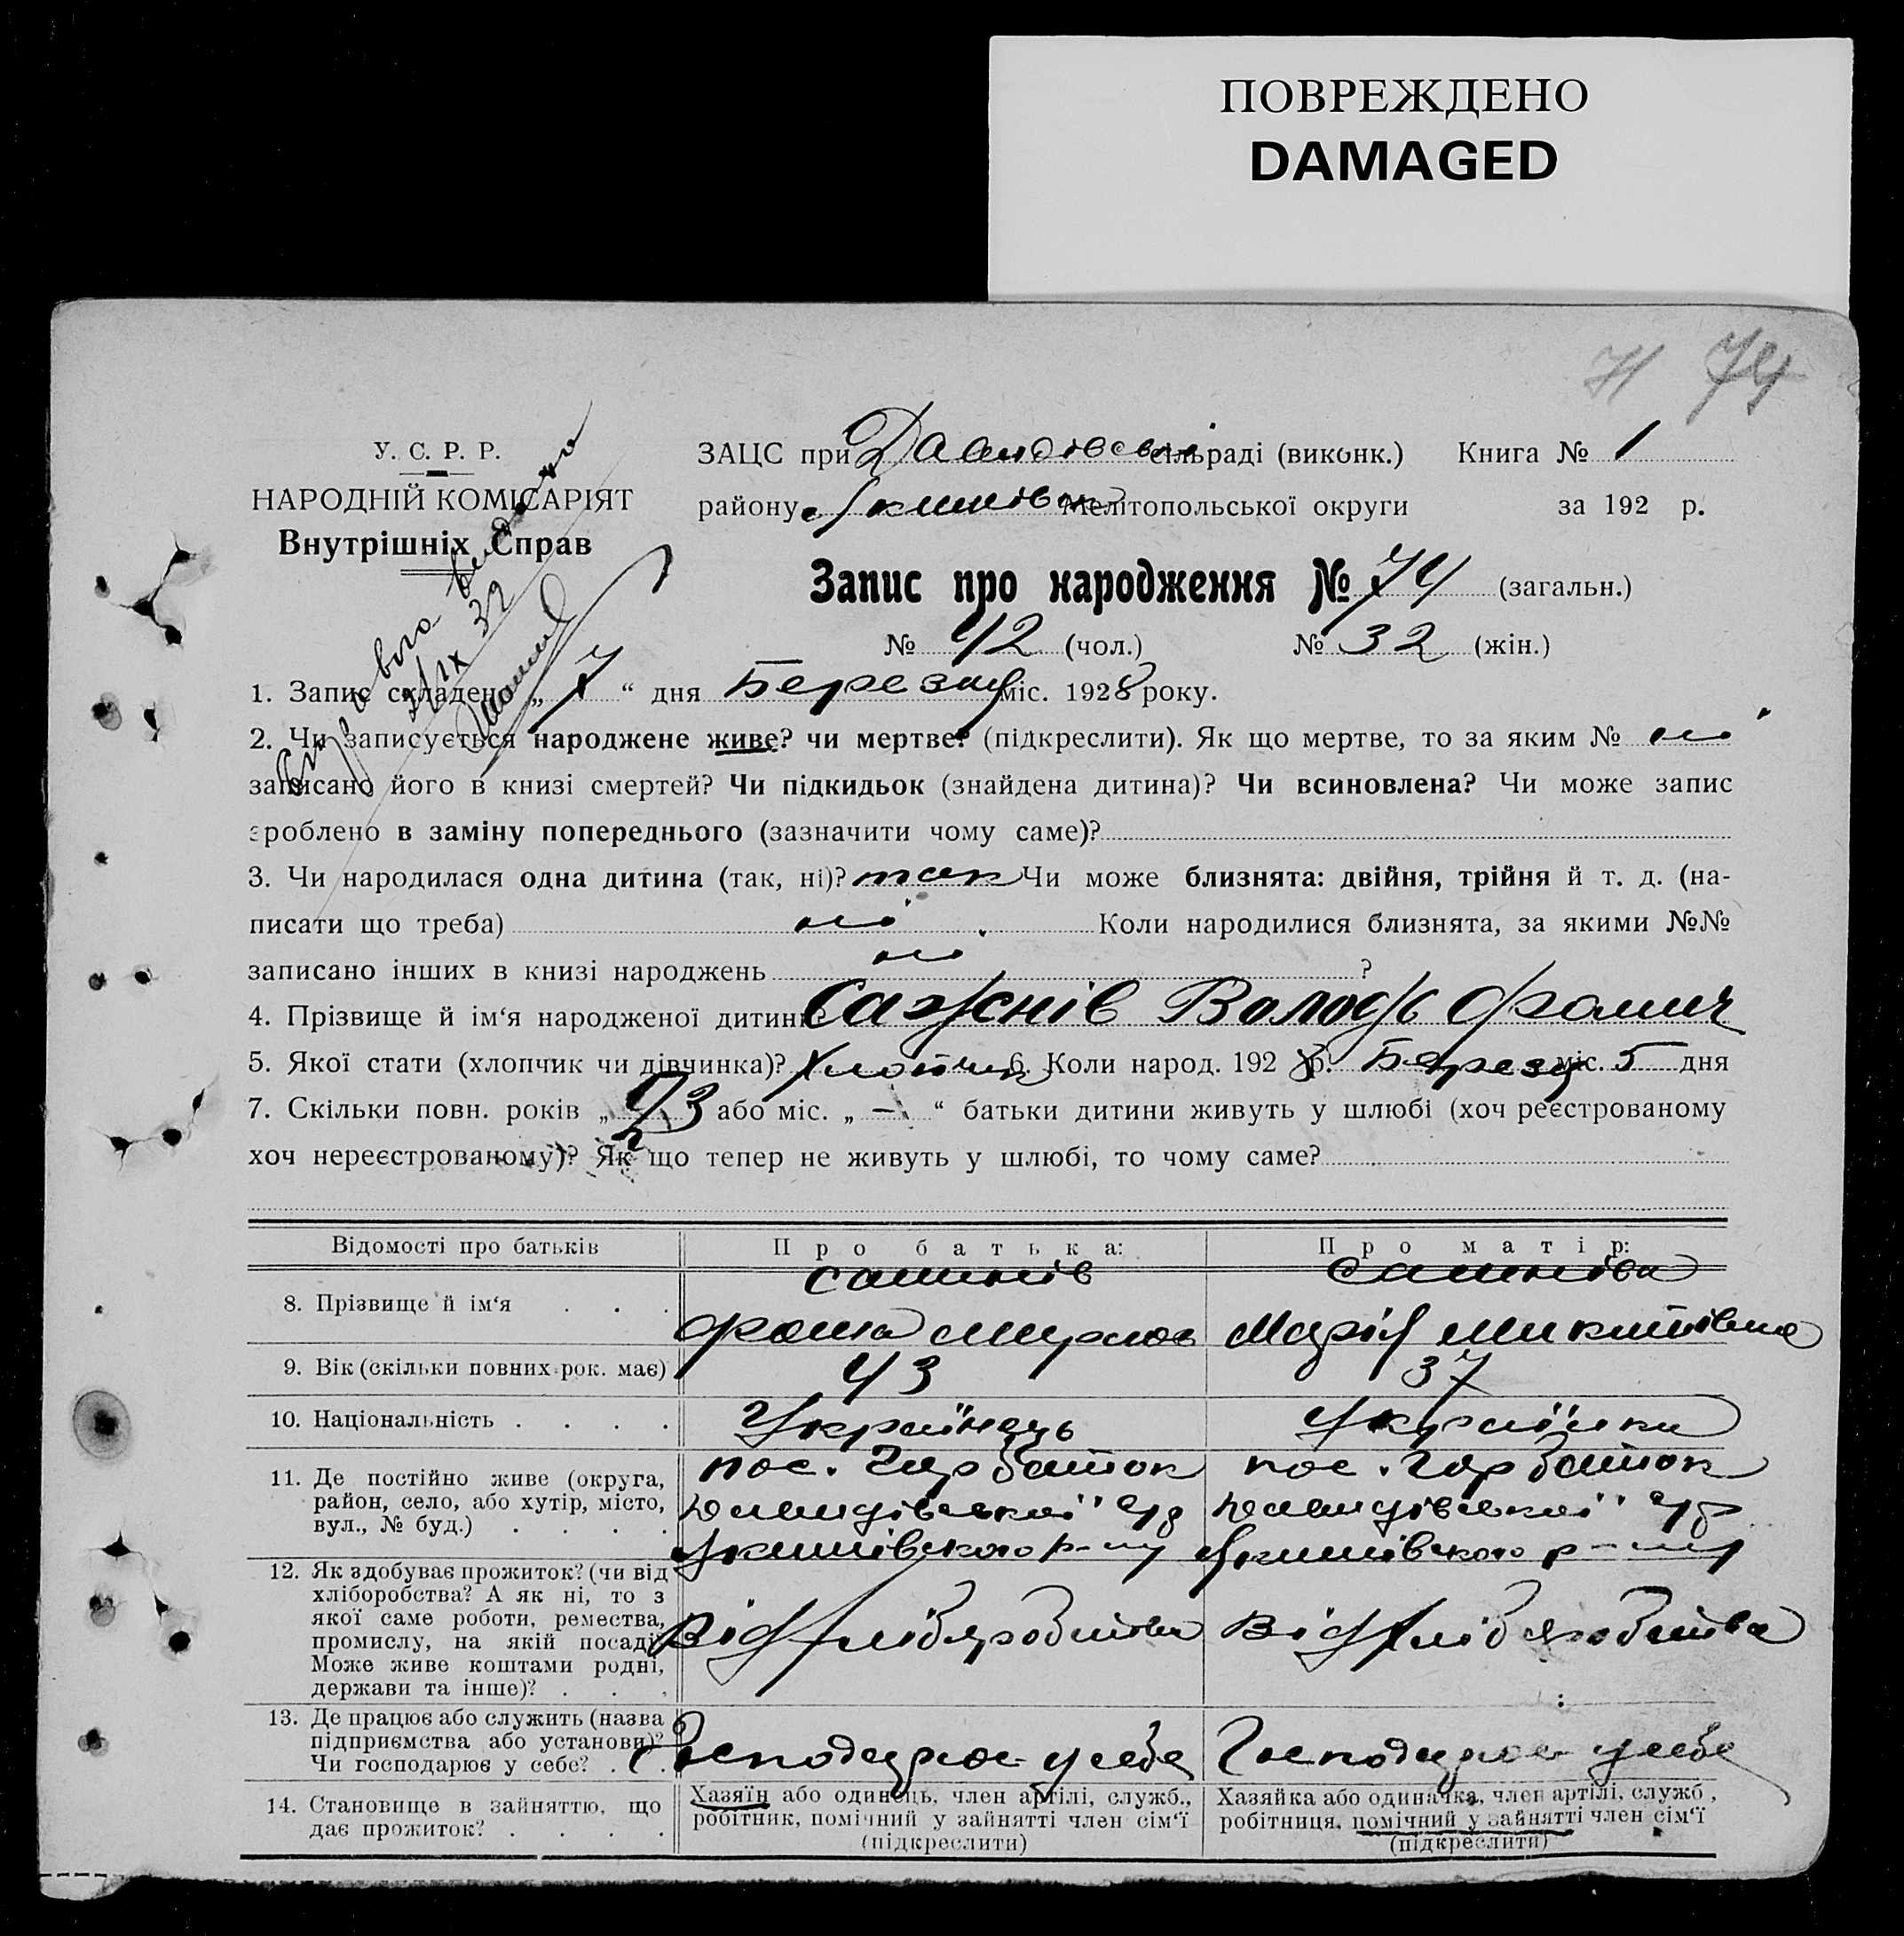 ПОВРЕЖДЕНО
DAMAGED
71 74
У. С. Р. Р.
НАРОДНІЙ КОМІСАРІЯТ
Внутрішніх Справ
ЗАЦС при Давидівські сільраді (виконк.) Книга № 1
району Якимівськ Мелітопольської округи за 192 р.
Запис про народження № 74 (загальн.)
№ 42 (чол.) № 32 (жін.)
1. Запис складено „ 7 “ дня Березня міс. 1928 року.
2. Чи записується народжене живе? чи мертве? (підкреслити). Як що мертве, то за яким № ні
записано його в книзі смертей? Чи підкидьок (знайдена дитина)? Чи всиновлена? Чи може запис
зроблено в заміну попереднього (зазначити чому саме)?
3. Чи народилася одна дитина (так, ні)? так Чи може близнята: двійня, трійня й т. д. (на-
писати що треба) ні Коли народилися близнята, за якими №№
записано інших в книзі народжень ні ?
4. Прізвище й ім‘я народженої дитини Сажнів Володь Фомич
5. Якої стати (хлопчик чи дівчинка)? Хлопчик 6. Коли народ. 1928 р. Березня міс. 5 дня
7. Скільки повн. років „ 23 або міс. „ — “ батьки дитини живуть у шлюбі (хоч реєстрованому
хоч нереєстрованому)? Як що тепер не живуть у шлюбі, то чому саме?
Відомості про батьків
Про батька:
Про матір:
8. Прізвище й ім‘я . . .
Сашнів
Фома
Сашнова
Марія Микитівна
9. Вік (скільки повних рок. має)
43
37
10. Національність . . . .
Українець
Українка
11. Де постійно живе (округа,
район, село, або хутір, місто,
вул., № буд.) . . . .
пос. Гарбаток
Давидівської с/р
Якимівського р-ну
пос. Гарбаток
Давидівської с/р
Якимівського р-ну
12. Як здобуває прожиток? (чи від
хліборобства? А як ні, то з
якої саме роботи, ремества,
промислу, на якій посаді?
Може живе коштами родні,
держави та інше)? . . .
Від хліборобства
Від хліборобства
13. Де працює або служить (назва
підприємства або установи)?
Чи господарює у себе? . .
Господарює у себе
Господарює у себе
14. Становище в зайняттю, що
дає прожиток? . . . .
Хазяїн або одинець, член артілі, служб.,
робітник, помічний у зайнятті член сім‘ї
(підкреслити)
Хазяйка або одиначка, член артілі, служб.,
робітниця, помічний у зайнятті член сім‘ї
(підкреслити)